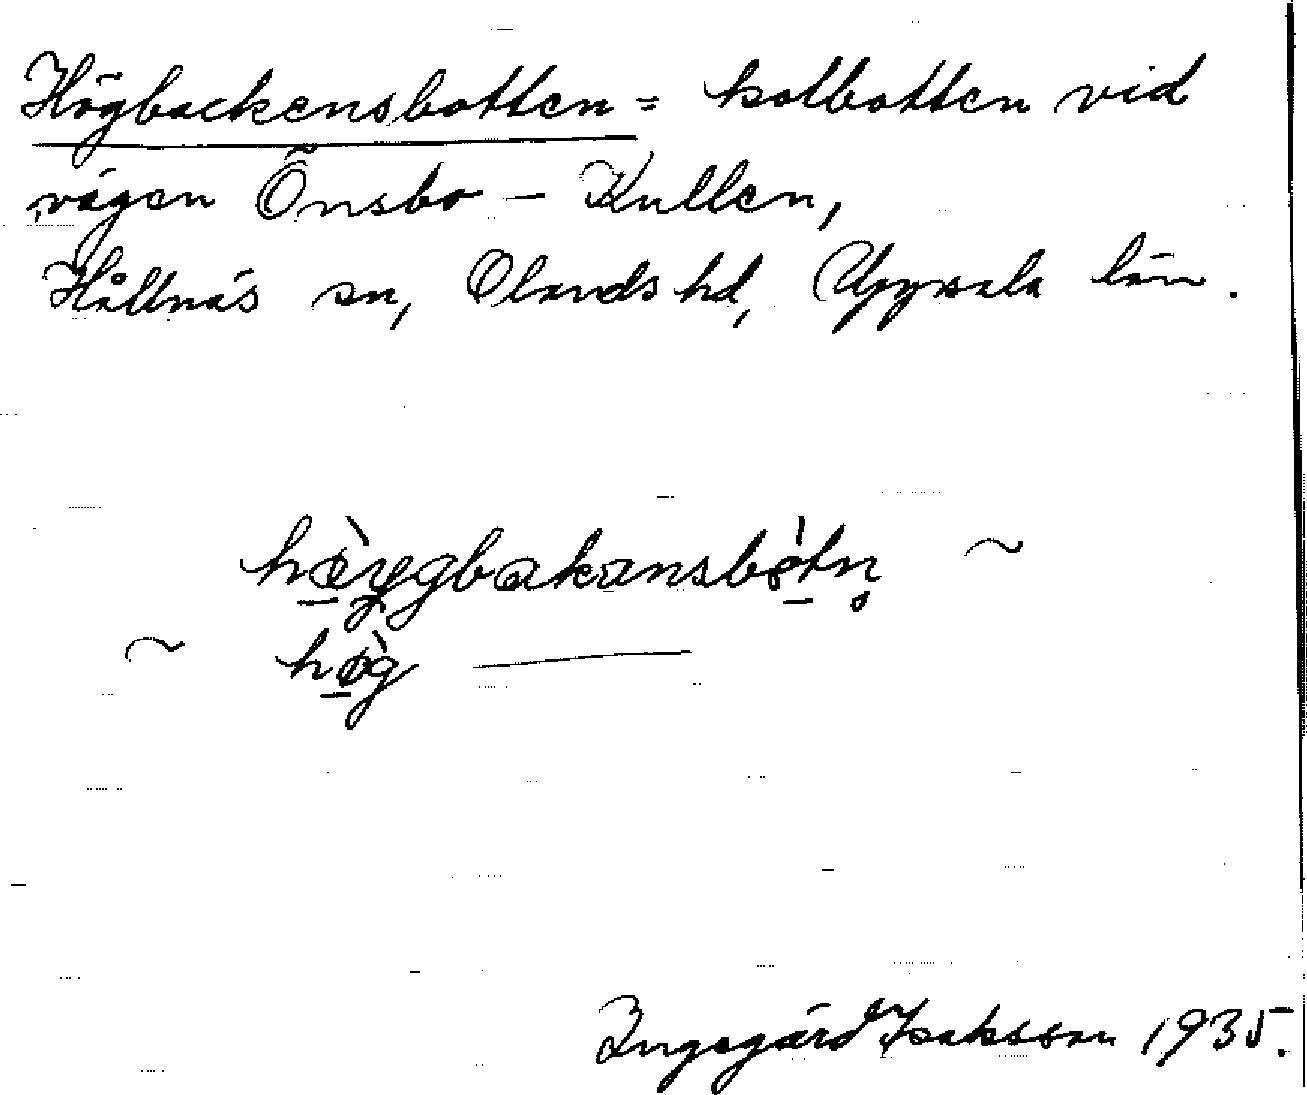 Högbackensbotten = kolbotten vid
vägen Önsbo – Kullen,
Hållnäs sn, Olands hd, Uppsala län.
hø̀ygbakansbòtn̥ ~
~ hø̀g ———
Ingegärd Isaksson 1935.